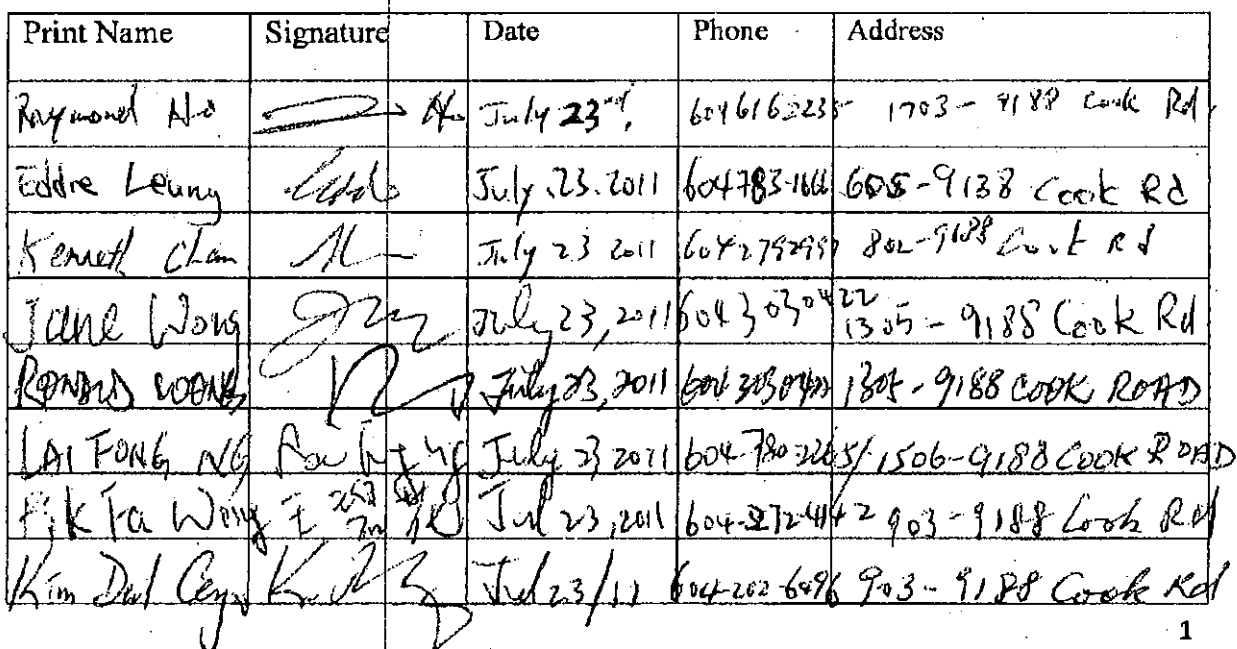 Print Name Signature Date Phone Address
Raymond Ho Ho July 23rd, 6046162235 1703 - 9188 Cook Rd,
Eddie Leung July.23.2011 604783-1666 605-9138 Cook Rd
Kenneth Chan July 23 2011 6042792997 802-9188 Cook Rd
Jane Wong July 23, 2011 6043030422 1305 - 9188 Cook Rd
July 23, 2011 1305 - 9188 COOK ROAD
LAI FONG NG July 23 2011 604-780-2265 / 1506-9188 COOK ROAD
Pik Fa Wong Jul 23, 2011 604-272-4142 903-9188 Cook Rd
Kim Jul 23/11 604-202-6496 903-9188 Cook Rd
1